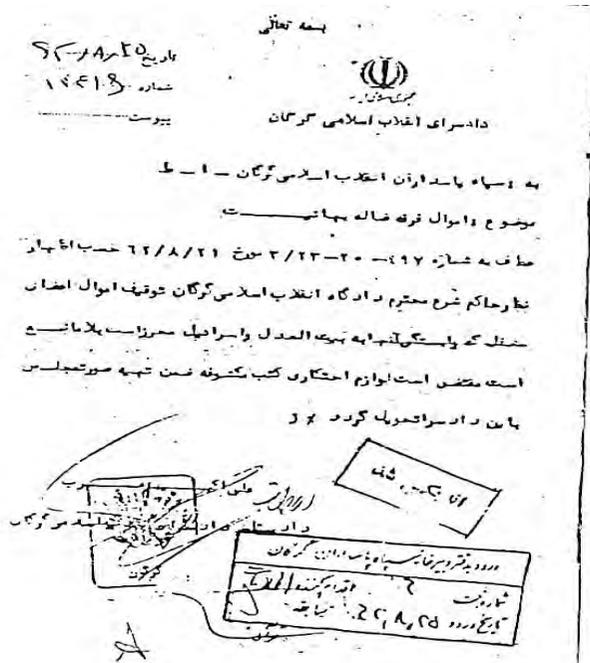 بسمه تعالی
تاریخ ۶۲/۸/۲۵
شماره
پیوست
دادسرای انقلاب اسلامی گرگان
به : سپاه پاسداران انقلاب اسلامی گرگان – ا – ط
موضوع : اموال فرقه ضاله بهائیت
عطف به شماره ۲/۲۳–۲۰–۴۹۷ مورخ ۶۲/۸/۲۱ حسب اظهار
نظر حاکم شرع محترم دادگاه انقلاب اسلامی گرگان توقیف اموال اعضای
محفل که وابستگی آنها به بیت العدل و اسرائیل محرز است بلامانع
است مقتضی است لوازم احتکاری کتب مکشوفه ضمن تهیه صورتمجلس
باین دادسرا تحویل گردد
علی
دادستان انقلاب اسلامی گرگان
ورود به دفتر دبیرخانه سپاه پاسداران گرگان
شماره ثبت
اقدام کننده اطلاعات
تاریخ ورود ۶۲،۸،۲۵ سابقه